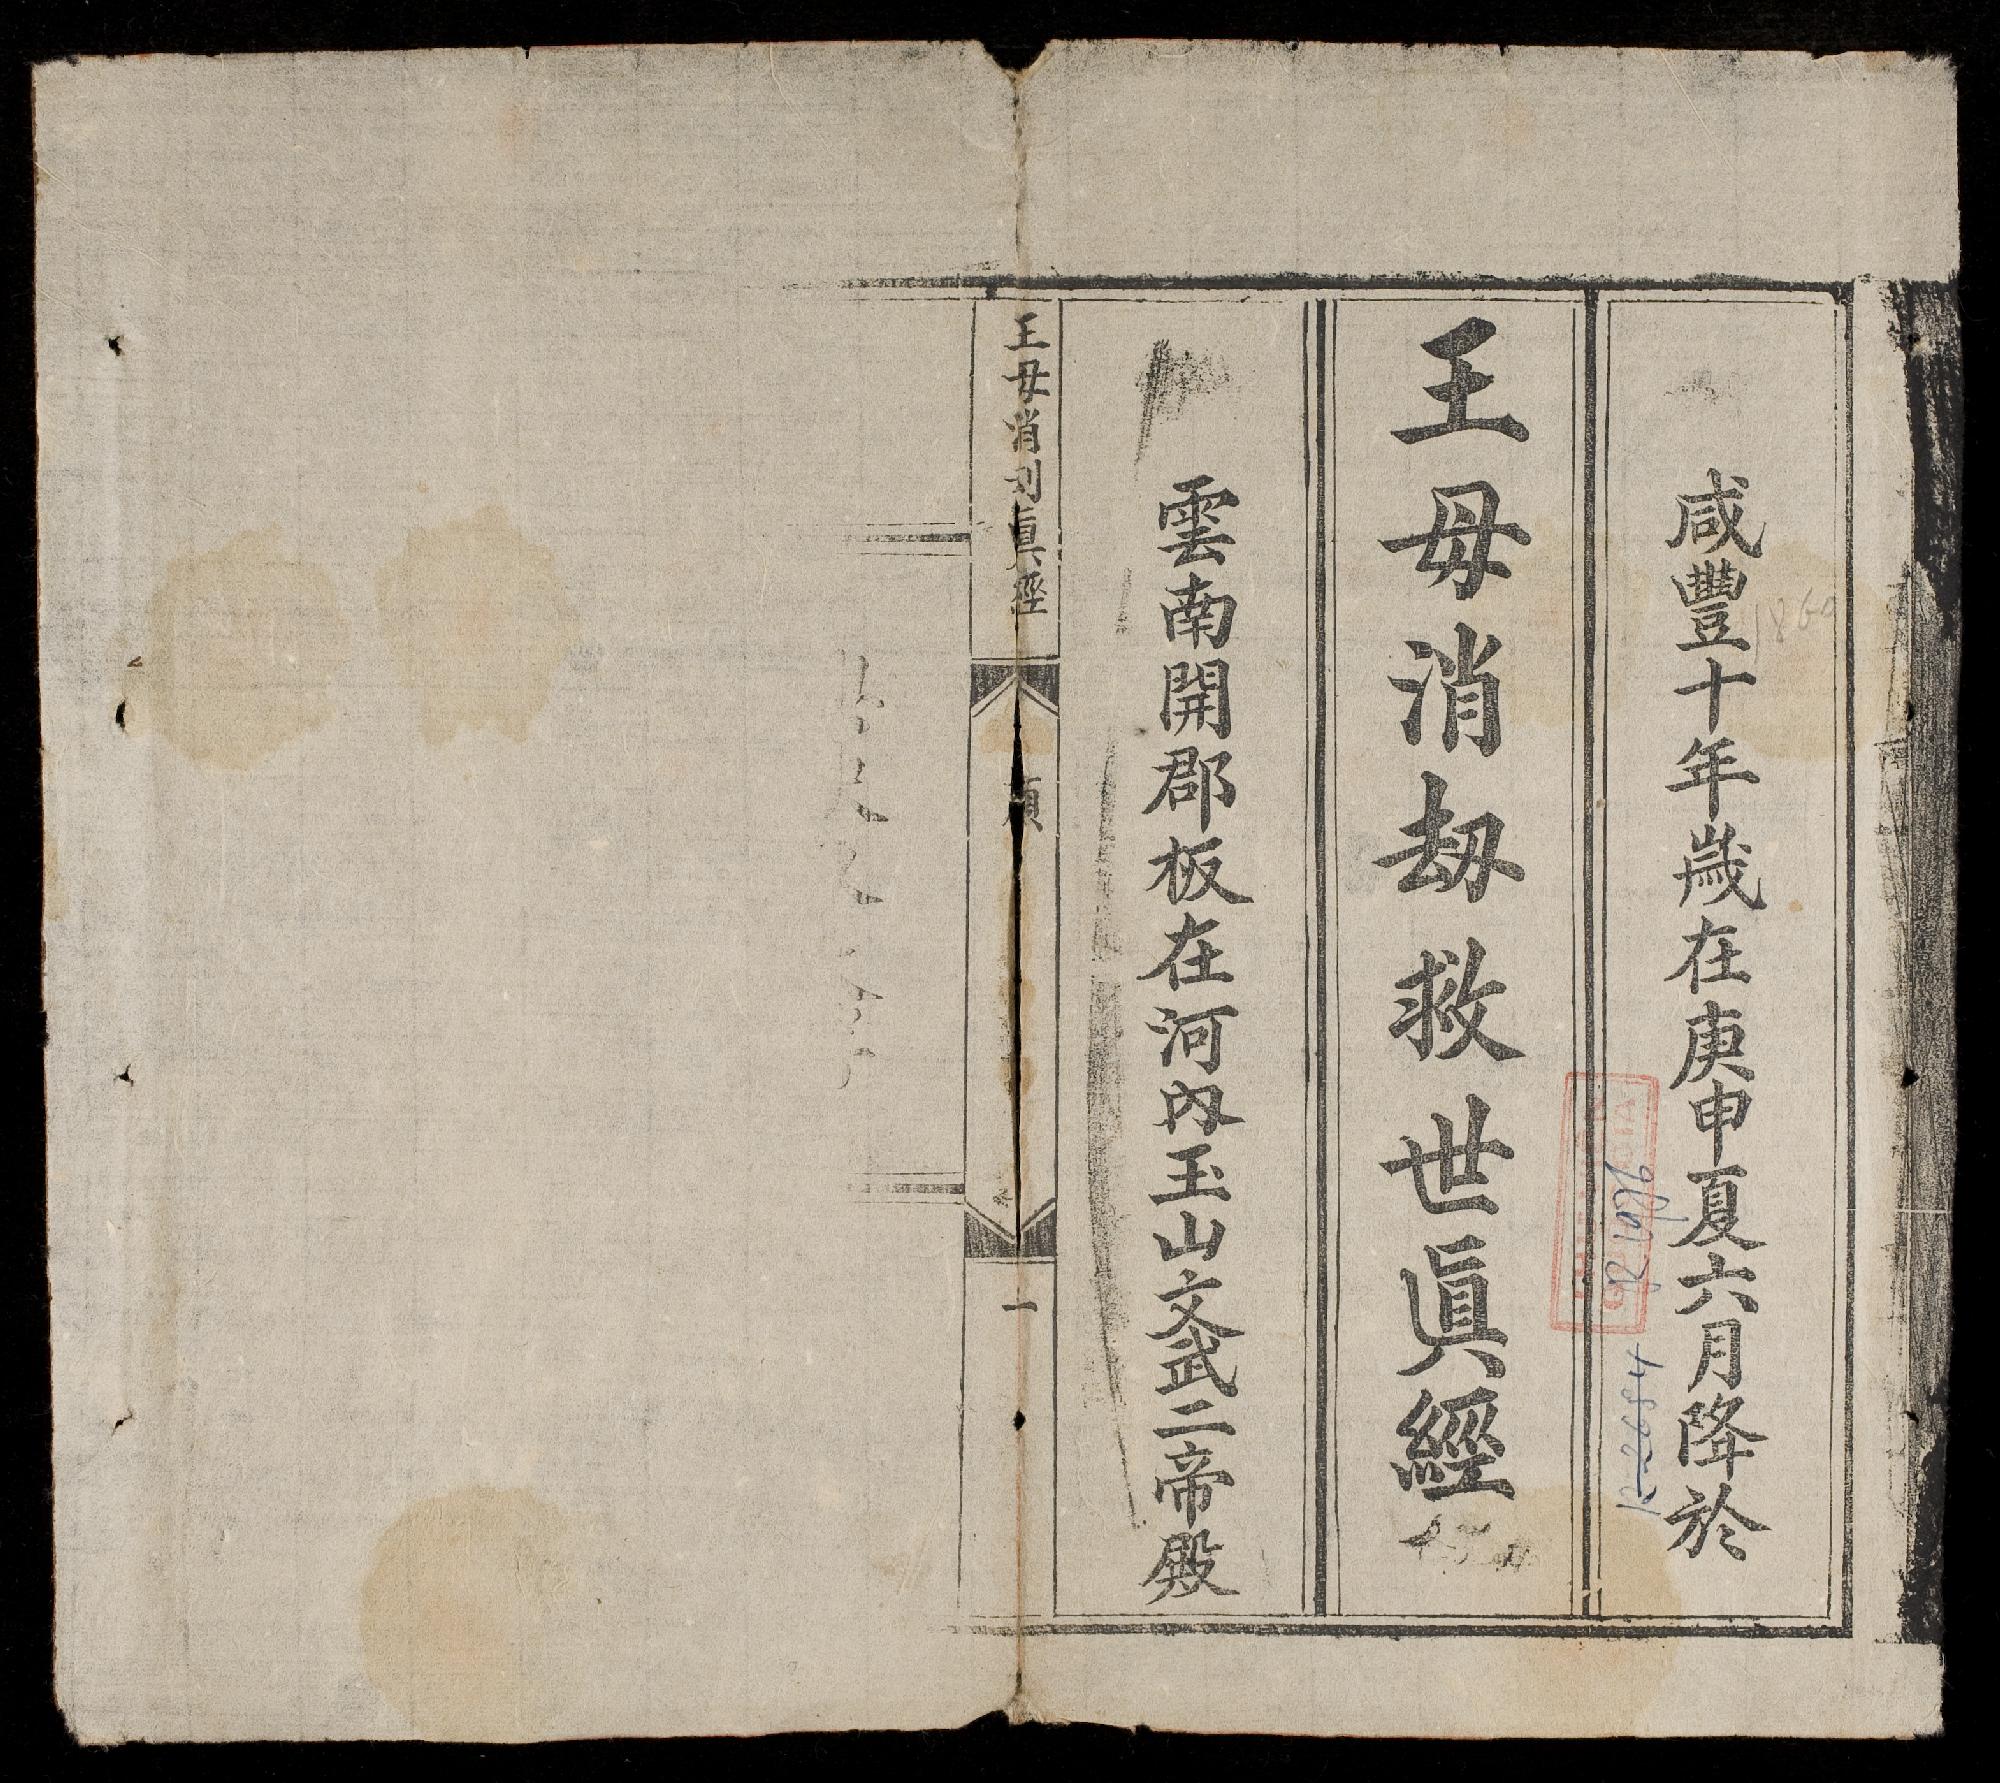 咸豐十年歲在庚申夏六月降於
1860
王母消劫救世眞經
雲南開郡板在河內玉山文武二帝殿
王母消劫眞經
一
R 26584